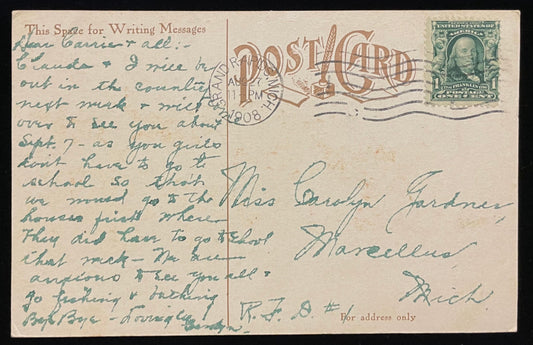 This Space for Writing Messages
POST CARD
GRAND RAPIDS, MICH.
1908
UNITED STATES
FRANKLIN
POSTAGE
ONE CENT
1
Dear Carrie & all:-
Claude & I will be
out in the country
next week & will
over to see you about
Sept. 7 - as you girls
don't have to go to
school so that
we would go to the
houses first where
they did have to go to school
that week - We are
anxious to see you all &
go fishing & bathing
Bye Bye - Lovingly
Miss Carolyn Gardner,
Marcellus,
Mich
R. F. D. #1
For address only